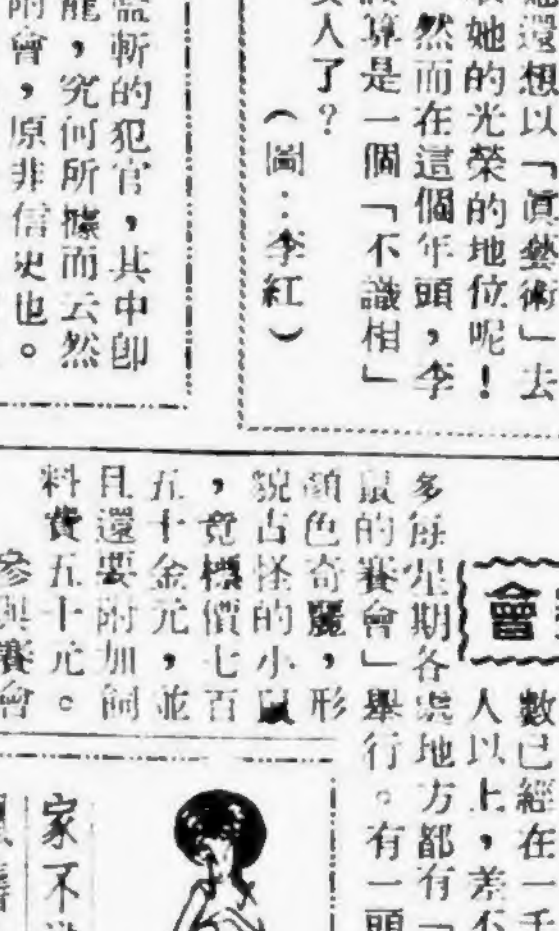 還想以「眞藝術」去
她的光榮的地位呢！
然而在這個年頭，李
算是一個「不識相」
人了？
（圖：李紅）
斬的犯官，其中卽
龍，究何所據而云然
附會，原非信史也。
會
數已經在一千
人以上，差不
多每星期各處地方都有「
鼠的賽會」舉行。有一頭
顏色奇麗，形
貌古怪的小鼠
，竟標價七百
五十金元，並
且還要附加飼
料費五十元。
參與賽會
家不